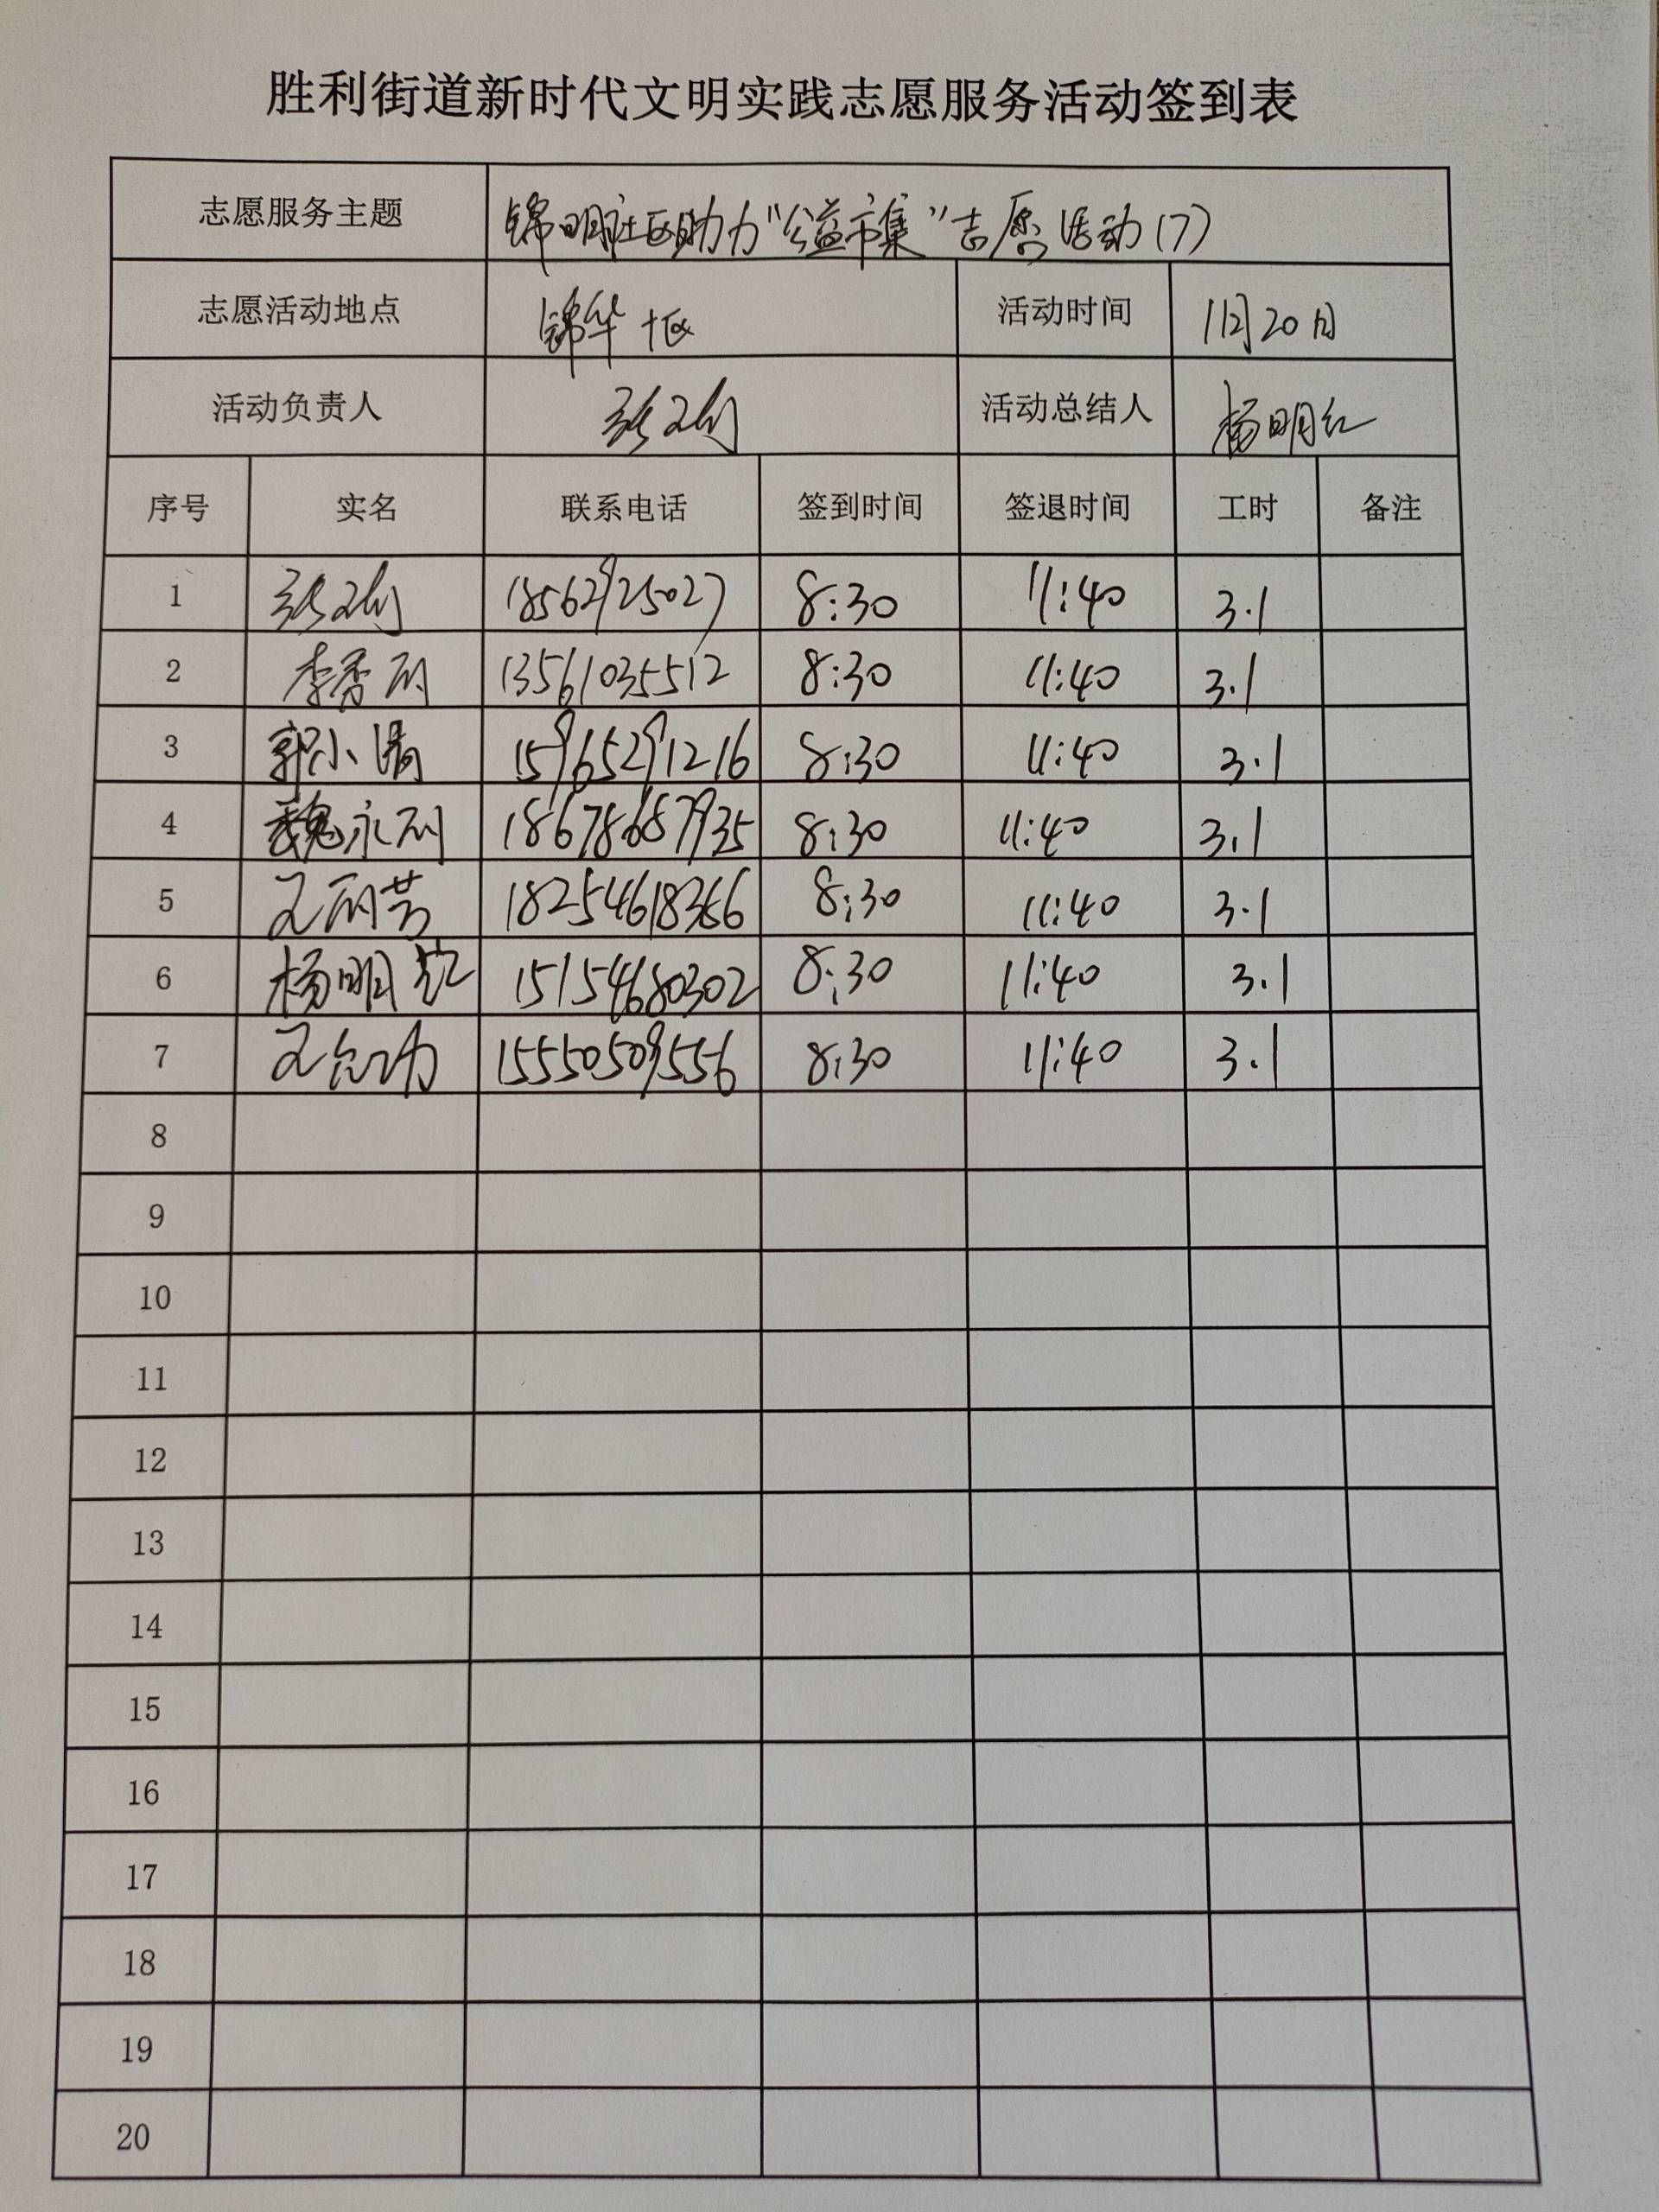 胜利街道新时代文明实践志愿服务活动签到表
志愿服务主题 锦明社区助力“公益市集”志愿活动(7)
志愿活动地点 锦华十区 活动时间 11月20日
活动负责人 活动总结人 杨明红
序号 实名 联系电话 签到时间 签退时间 工时 备注
1 18562925027 8:30 11:40 3.1
2 李秀丽 13561035512 8:30 11:40 3.1
3 郭小满 15965291216 8:30 11:40 3.1
4 魏永利 18678687935 8:30 11:40 3.1
5 王丽芳 18254618366 8:30 11:40 3.1
6 杨明红 15154680302 8:30 11:40 3.1
7 15550509556 8:30 11:40 3.1
8
9
10
11
12
13
14
15
16
17
18
19
20